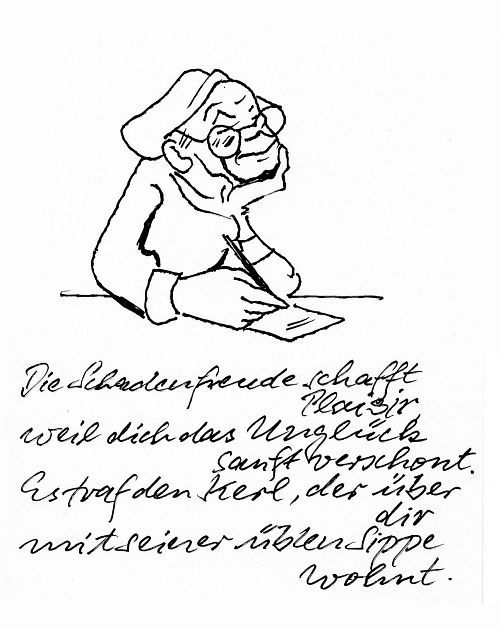 Die Schadenfreude schafft
Plaisir
weil dich das Unglück
sanft verschont.
Es traf den Kerl, der über
dir
mit seiner üblen Sippe
wohnt.